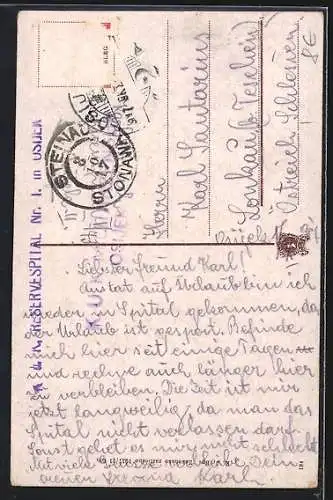 K. u. K. RESERVESPITAL Nr. 1. in OSIJEK
STEINAMANGER
8€
Herrn
Karl Santarius
Lonkau b/ Teschen
Östreich Schlesien
Liebster Freund Karl!
Anstat auf Urlaub bin ich
wieder in Spital gekommen, da
der Urlaub ist gespert. Befinde
mich hier seit einige Tagen
und rechne auch länger hier
zu verbleiben. Die Zeit ist mir
jetzt langweilig, da man das
Spital nicht verlassen darf.
Sonst gehet es mir nicht schlecht
Mit viele Grüße Dein
Freund Karl